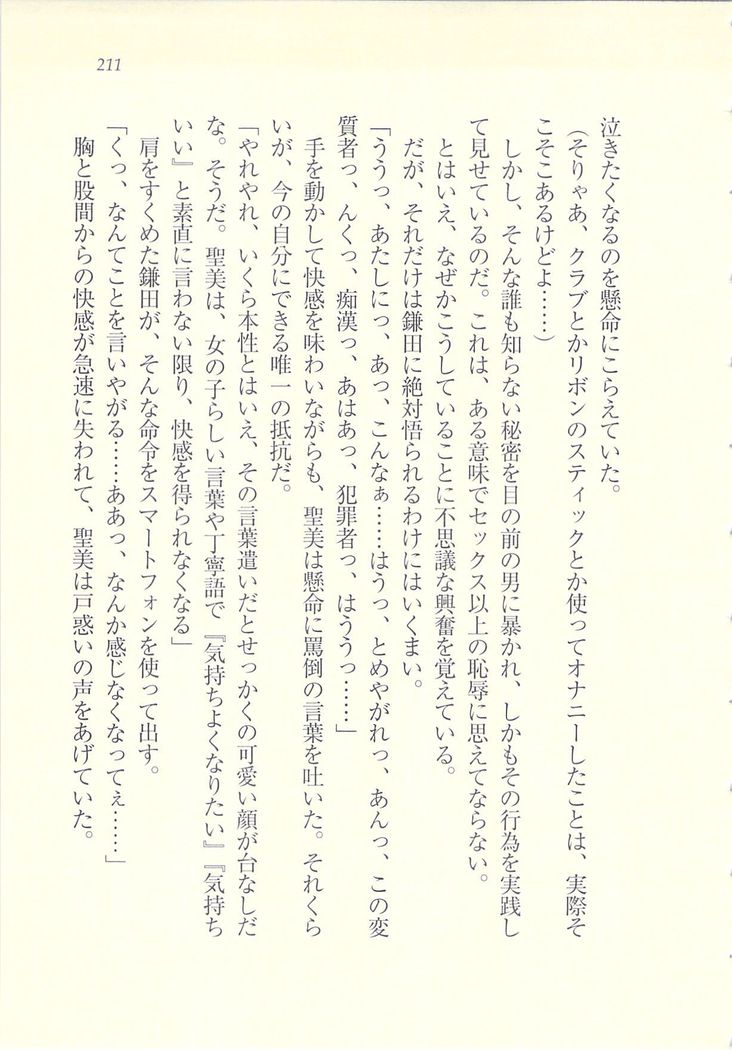 211
泣きたくなるのを懸命にこらえていた。
（そりゃあ、クラブとかリボンのスティックとか使ってオナニーしたことは、実際そ
こそこあるけどよ……）
しかし、そんな誰も知らない秘密を目の前の男に暴かれ、しかもその行為を実践し
て見せているのだ。これは、ある意味でセックス以上の恥辱に思えてならない。
とはいえ、なぜかこうしていることに不思議な興奮を覚えている。
だが、それだけは鎌田に絶対悟られるわけにはいくまい。
「ううっ、あたしにっ、あっ、こんなぁ……はうっ、とめやがれっ、あんっ、この変
質者っ、んくっ、痴漢っ、あはあっ、犯罪者っ、はううっ……」
手を動かして快感を味わいながらも、聖美は懸命に罵倒の言葉を吐いた。それくら
いが、今の自分にできる唯一の抵抗だ。
「やれやれ、いくら本性とはいえ、その言葉遣いだとせっかくの可愛い顔が台なしだ
な。そうだ。聖美は、女の子らしい言葉や丁寧語で『気持ちよくなりたい』『気持ち
いい』と素直に言わない限り、快感を得られなくなる」
肩をすくめた鎌田が、そんな命令をスマートフォンを使って出す。
「くっ、なんてことを言いやがる……ああっ、なんか感じなくなってぇ……」
胸と股間からの快感が急速に失われて、聖美は戸惑いの声をあげていた。